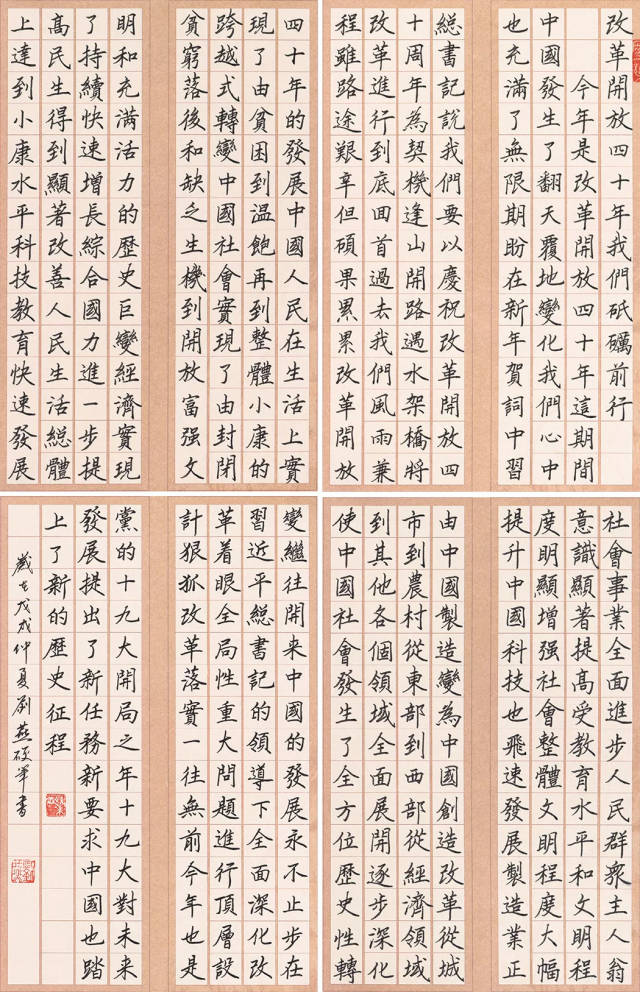 改革開放四十年我們砥礪前行
今年是改革開放四十年這期間
中國發生了翻天覆地變化我們心中
也充滿了無限期盼在新年賀詞中習
総書記說我們要以慶祝改革開放四
十周年為契機逢山開路遇水架橋將
改革進行到底回首過去我們風雨兼
程雖路途艱辛但碩果累累改革開放
四十年的發展中國人民在生活上實
現了由貧困到溫飽再到整體小康的
跨越式轉變中國社會實現了由封閉
貧窮落後和缺乏生機到開放富强文
明和充滿活力的歷史巨變經濟實現
了持續快速增長綜合國力進一步提
高民生得到顯著改善人民生活総體
上達到小康水平科技教育快速發展
社會事業全面進步人民群衆主人翁
意識顯著提高受教育水平和文明程
度明顯增强社會整體文明程度大幅
提升中國科技也飛速發展製造業正
由中國製造變為中國創造改革從城
市到農村從東部到西部從經濟領域
到其他各個領域全面展開逐步深化
使中國社會發生了全方位歷史性轉
變繼往開来中國的發展永不止步在
習近平総書記的領導下全面深化改
革着眼全局性重大問題進行頂層設
計狠狐改革落實一往無前今年也是
黨的十九大開局之年十九大對未来
發展提出了新任務新要求中國也踏
上了新的歷史征程
歲在戊戌仲夏劉燕硬筆書